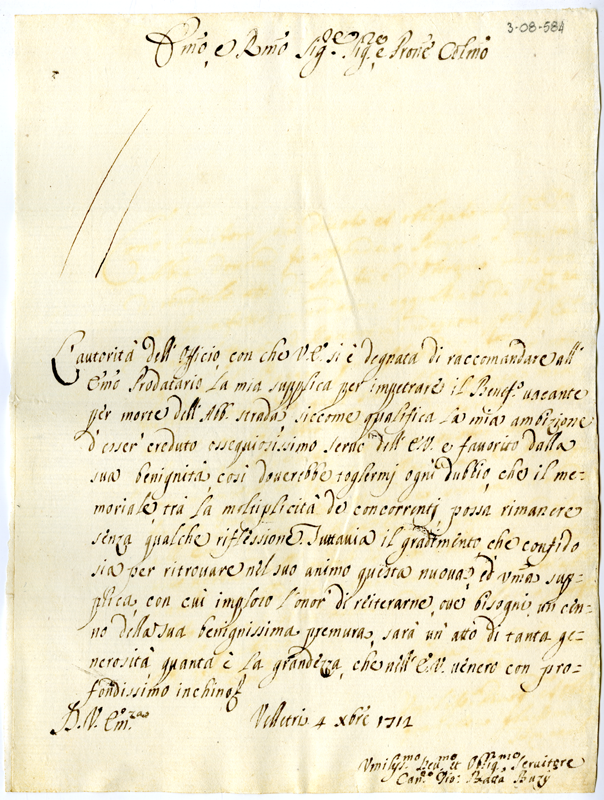 3-08-584
Em̃o, e Rm̃o Sig.re Sig.re e Pron̄e Colm̄o
L'autorità dell'Officio, con che V.E. si è degnata di raccomandare all'
Em̃o Prodatario la mia supplica per impetrare il Benef.o vacante
per morte dell'Abb. Strada, siccome qualifica la mia ambizione
d'esser creduto ossequiosissimo serue dell'E.V. e favorito dalla
sua benignità, così dovrebbe togliermi ogni dubbio, che il me=
moriale, trà la moltiplicità de concorrenti possa rimanere
senza qualche riflessione. Tuttavia il gradimento, che confido
sia per ritrovare nel suo animo questa nuova, ed um̃a sup=
plica, con cui imploro l'onor di reiterarne, ove bisogni, un cen=
no della sua benignissima premura, sarà un atto di tanta ge=
nerosità, quanta è la grandezza, che nell'E.V. venero con pro=
fondissimo inchino.
D. V. Em.za
Velletri 4 Xbre 1712
Umiliss.mo Deu.mo et Obblig.mo Seruitore
Can.co Gio: Batta